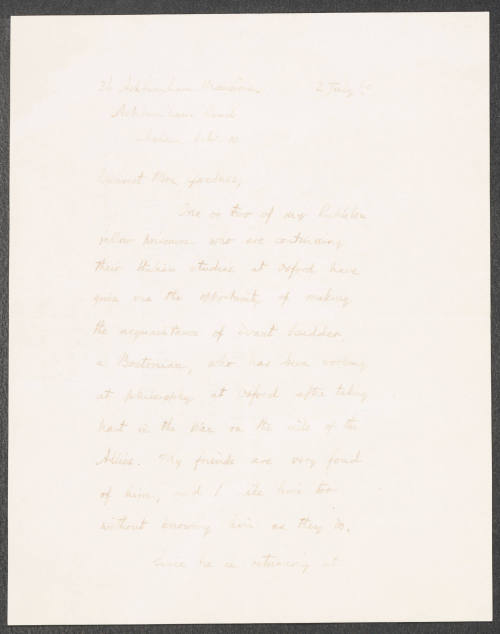 36 Ashburnham Mansions 2 July
Ashburnham Road
Chelsea
Dearest Mrs. Gardner,
One or two of my Ruhleben
fellow prisoners who are continuing
their studies at Oxford have
given me the opportunity of making
the acquaintance of Evart Scudder,
a Bostonian, who has been working
at philosophy at Oxford after taking
part in the War on the side of the
Allies. My friends are very fond
of him, and I like him too
without knowing him as they do.
Since he is returning at